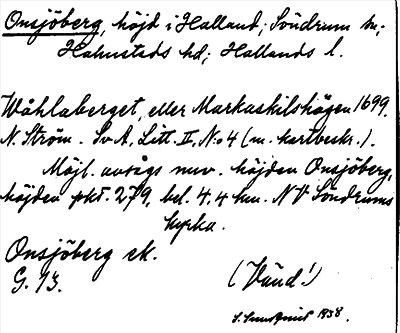 Onsjöberg, höjd i Halland; Söndrum sn;
Halmstads hd; Hallands l.
Wåhlaberget, eller Markaskilshögen 1699.
N. Ström. Sv A, Litt. II, N:o 4 (m. kartbeskr.).
Möjl. avsågs nuv. höjden Onsjöberg,
höjden pkt. 279, bel. 4,4 km. NV Söndrums
kyrka.
Onsjöberg ek.
G. 13.
(Vänd!)
1938.